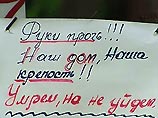 Руки прочь!!!
Наш дом, наша
крепость!!
Умрем, но не уйдем